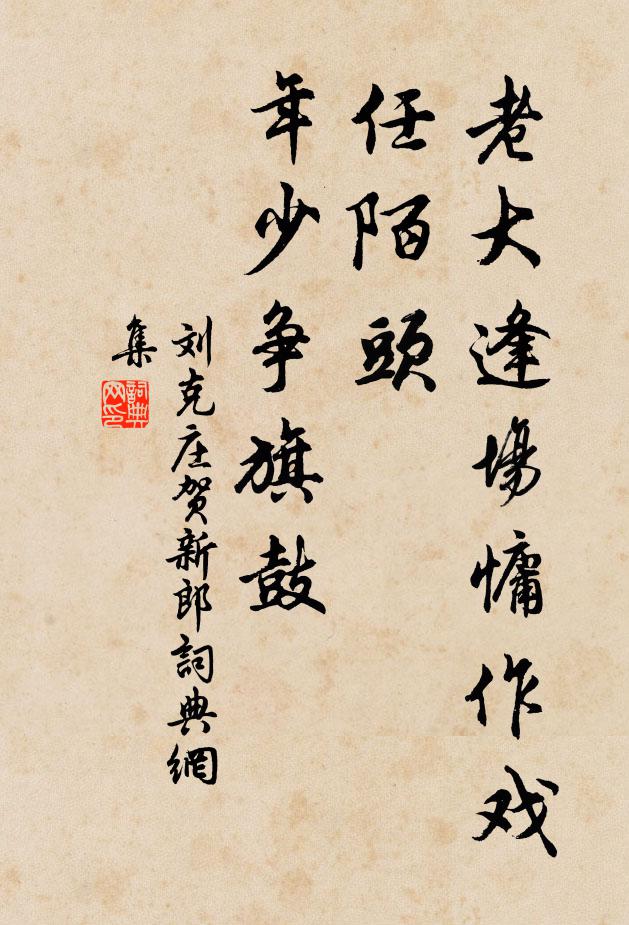 老大逢場慵作戏
任陌頭
年少争旗鼓
刘克庄贺新郎詞典網
集
詞典
网印